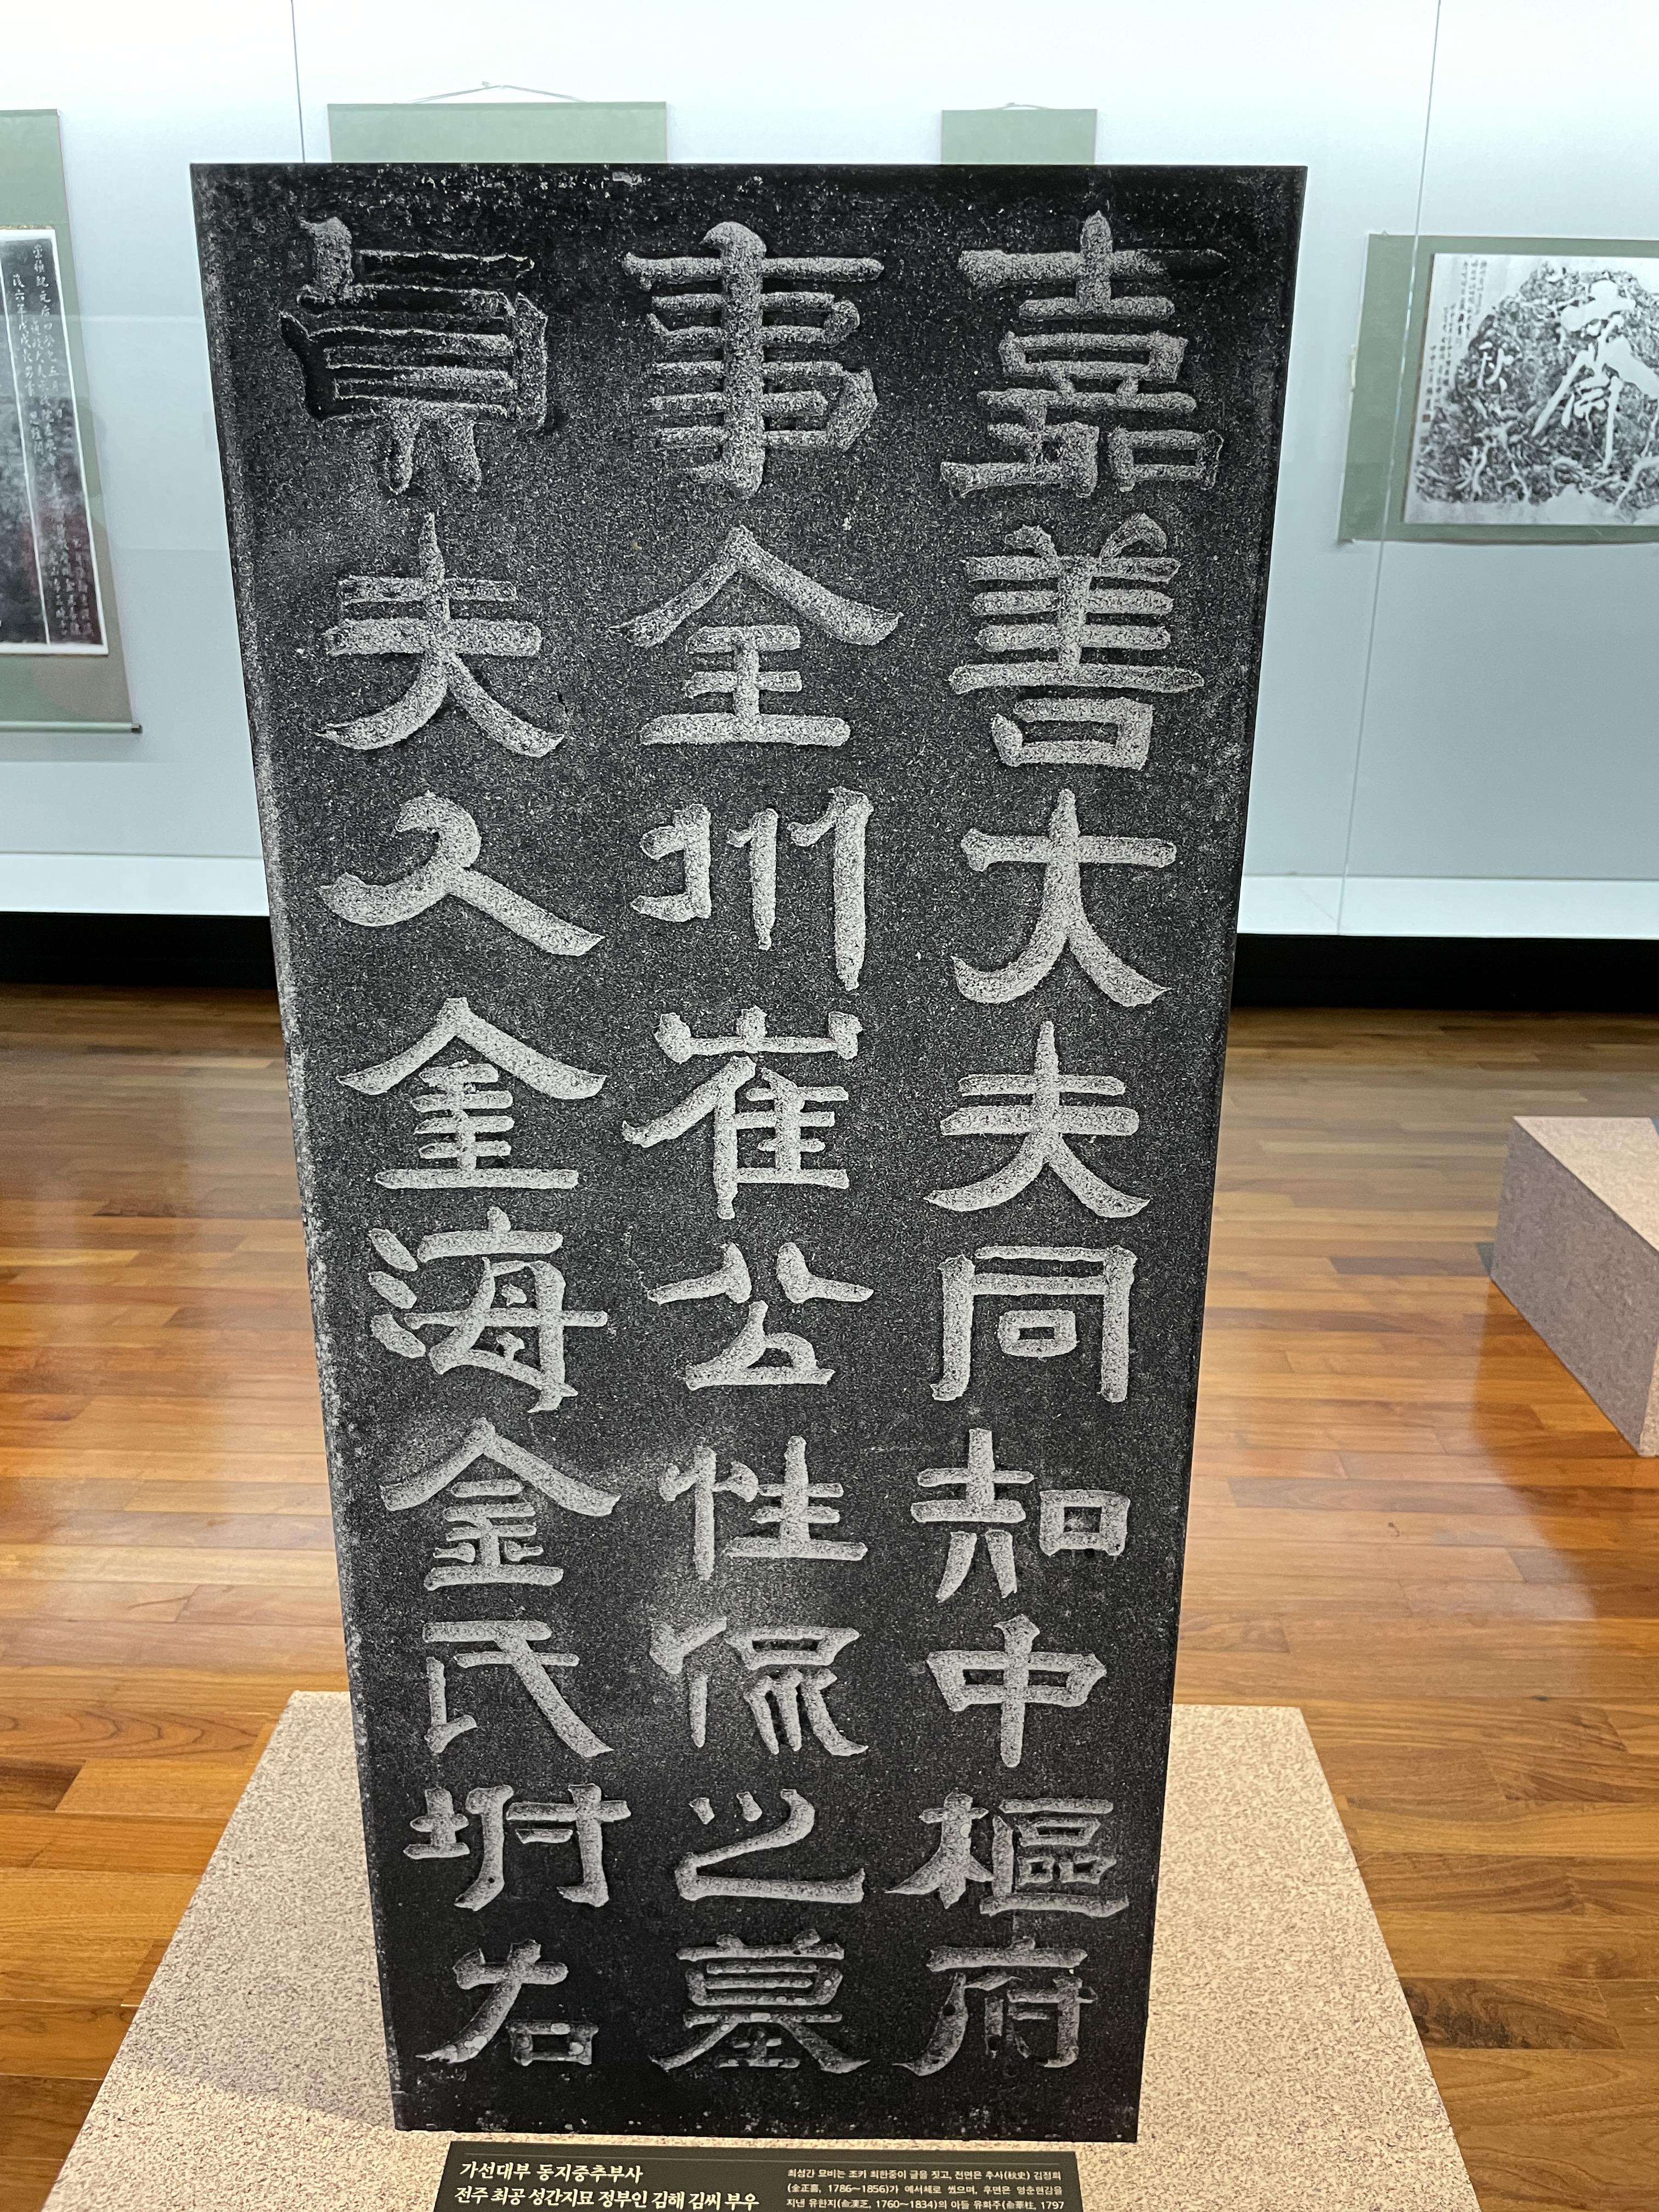 嘉善大夫同知中樞府
事全州崔公性侃之墓
貞夫人金海金氏坿右
가선대부 동지중추부사
전주 최공 성간지묘 정부인 김해 김씨 부우
최성간 묘비는 조카 최한중이 글을 짓고, 전면은 추사(秋史) 김정희
(金正喜, 1786~1856)가 예서체로 썼으며, 후면은 영춘현감을
지낸 유한지(兪漢芝, 1760~1834)의 아들 유화주(兪華柱, 1797